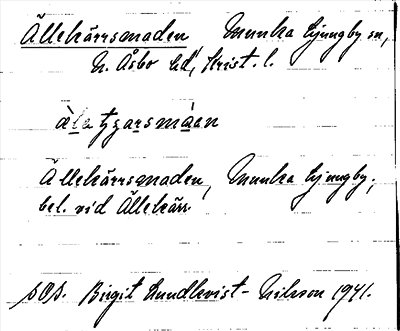 Ällekärrsmaden Munka Ljungby sn,
N. Åsbo hd, Krist. l.
ä̀le tʒarsmáan
Ällekärrsmaden, Munka Ljungby,
bel. vid Ällekärr.
SOA. Birgit Lundkvist-Nilsson 1941.